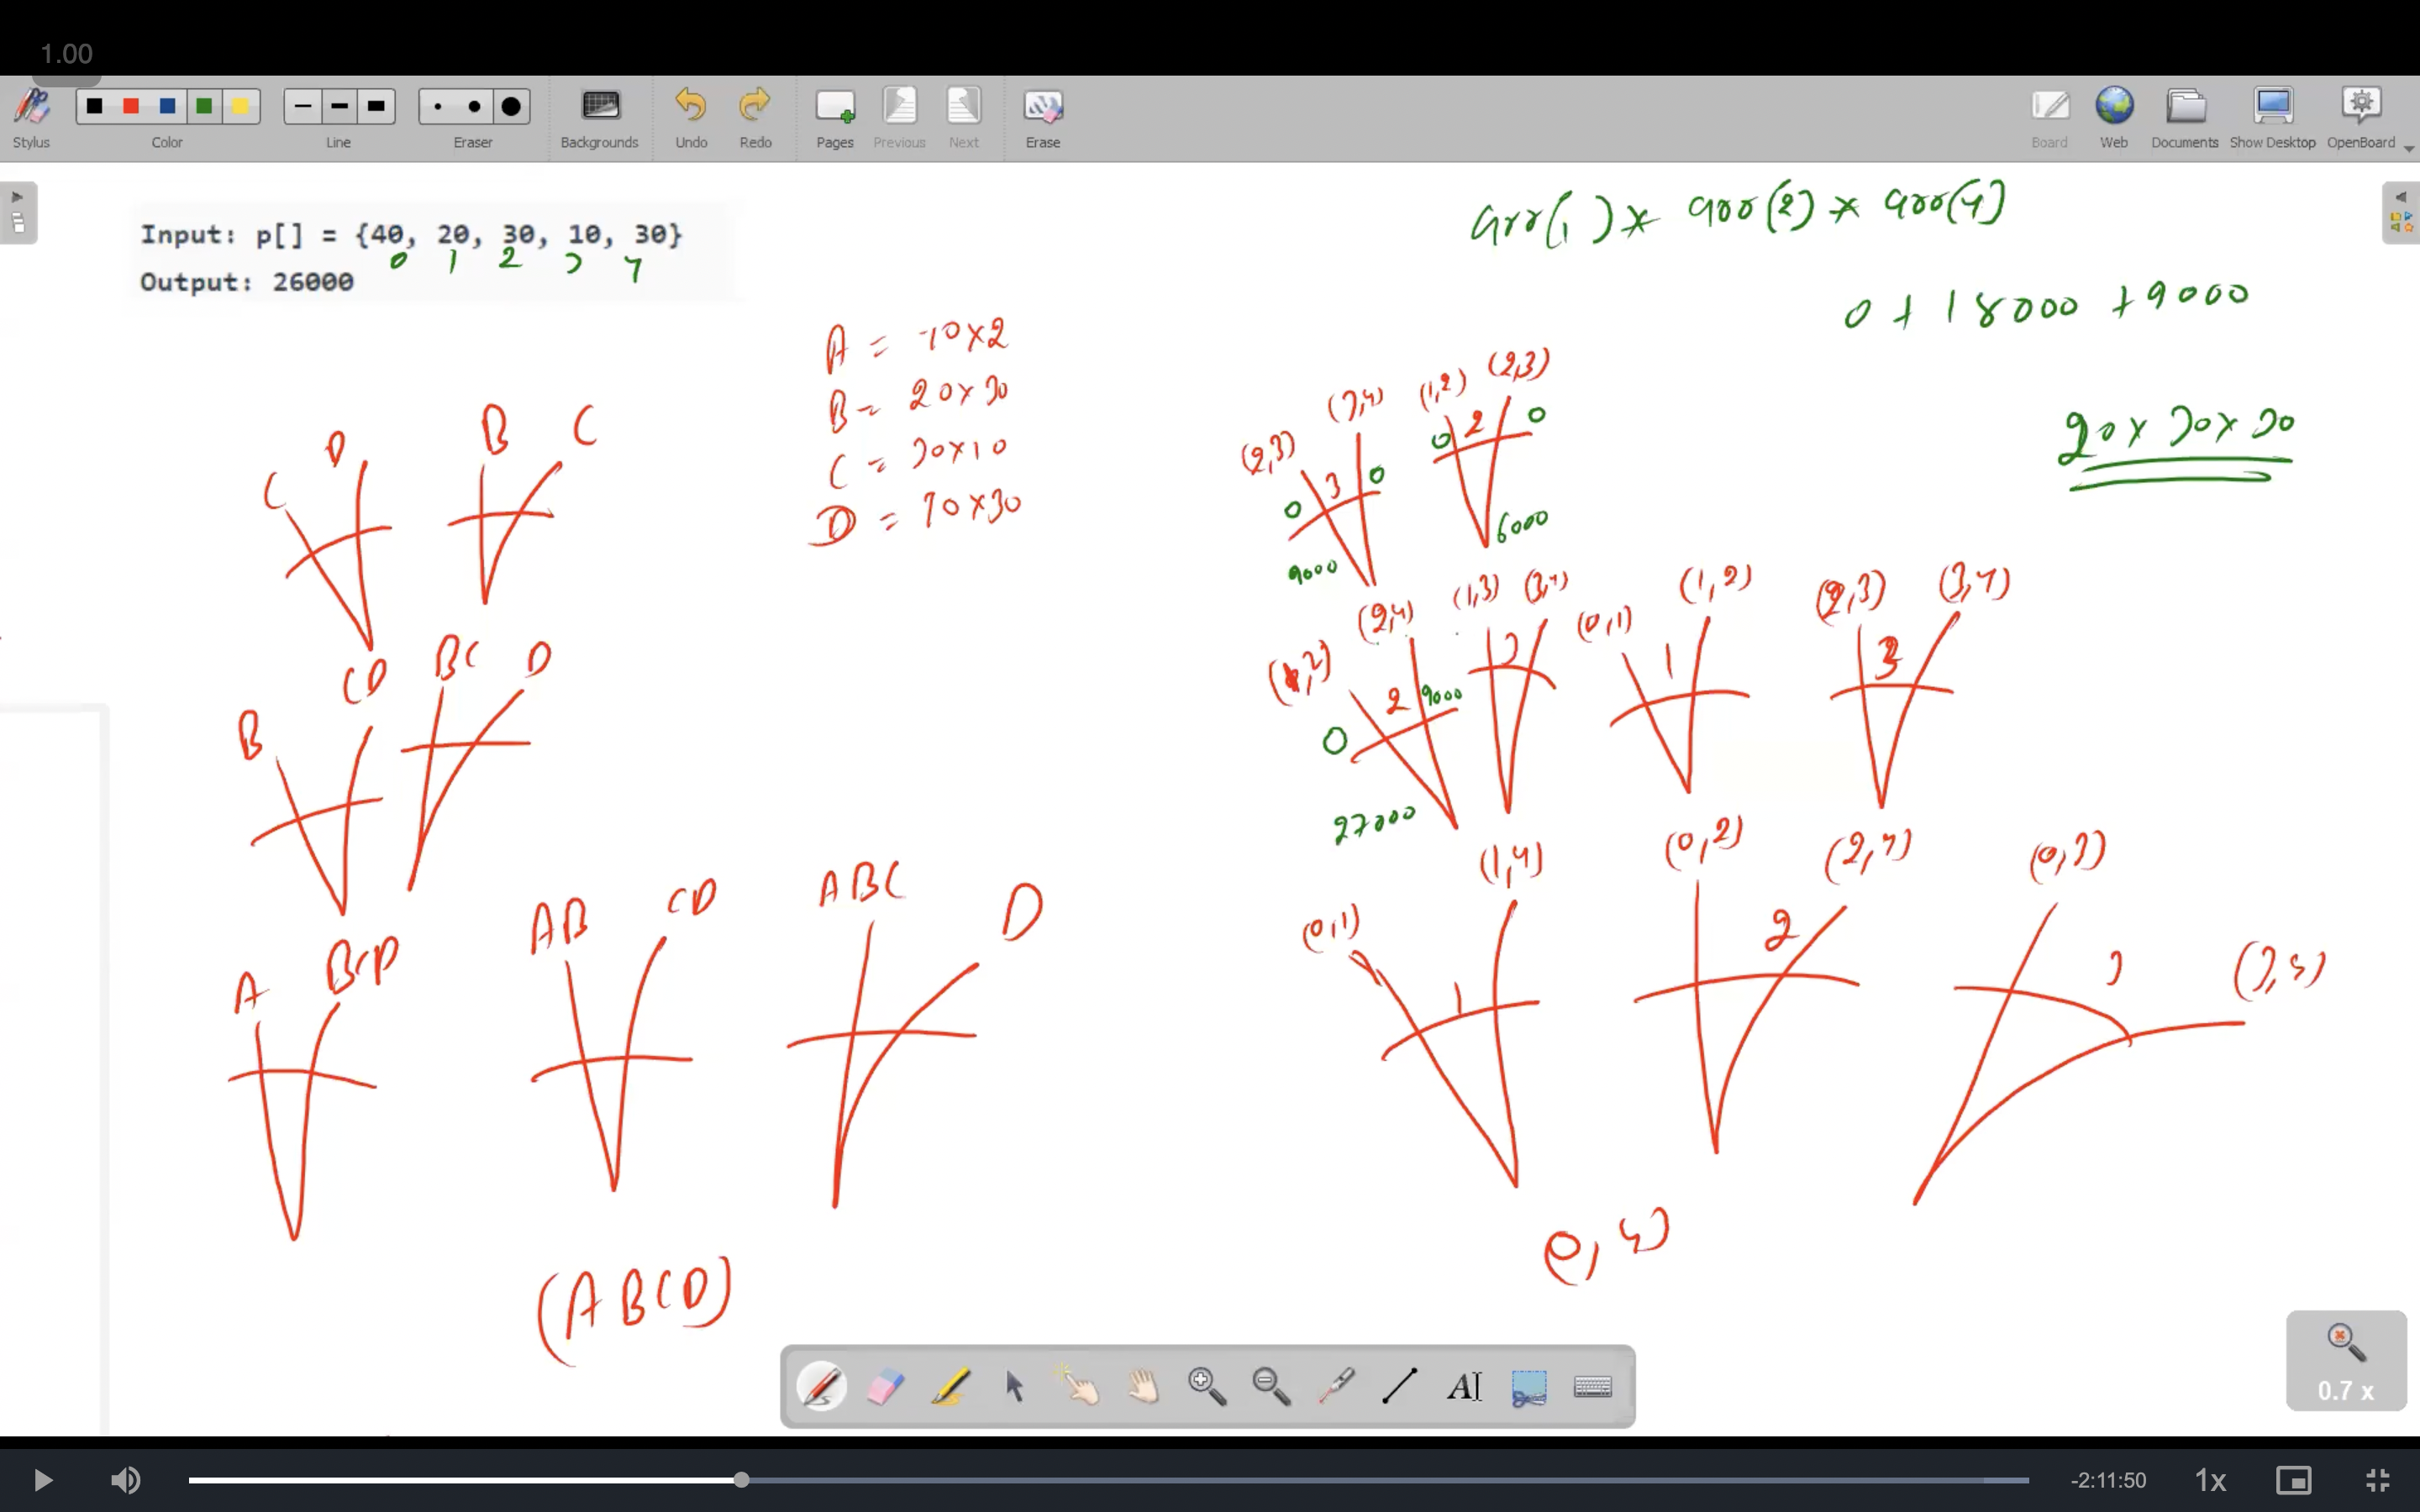 1.00
Stylus
Color
Line
Eraser
Backgrounds
Undo
Redo
Pages
Previous
Next
Erase
Board
Web
Documents
Show Desktop
OpenBoard
Input: p[] = {40, 20, 30, 10, 30}
0 1 2 3 4
Output: 26000
arr(1) * arr(2) * arr(4)
0 + 18000 + 9000
20 x 30 x 30
A = 40x2
B = 20x30
C = 30x10
D = 10x30
C D
B C
B CD
BC D
A BCD
AB CD
ABC D
(ABCD)
(2,3) (3,4)
0 3 0
9000
(1,2) (2,3)
0 2 0
6000
(1,2) (2,4)
0 2 9000
27000
(1,3) (3,4)
3
(0,1) (1,2)
1
(2,3) (3,4)
3
(0,1) (1,4)
1
(0,2) (2,4)
2
(0,3) (3,4)
3
0,4)
AI
0.7 x
-2:11:50
1x